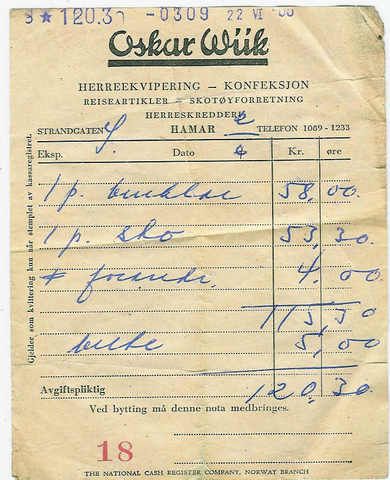 ★120.30 -0309 22 VI
Oskar Wiik
HERREEKVIPERING — KONFEKSJON
REISEARTIKLER — SKOTØYFORRETNING
HERRESKREDDERI
STRANDGATEN HAMAR TELEFON 1089 - 1233
Eksp. Dato Kr. øre
1 p. 58,00.
1 p. sko 53,30
4,00
115,30
belte 5,00
Avgiftspliktig 120,30
Ved bytting må denne nota medbringes.
18
THE NATIONAL CASH REGISTER COMPANY, NORWAY BRANCH
Gjelder som kvittering kun når stemplet av kassaregistret.